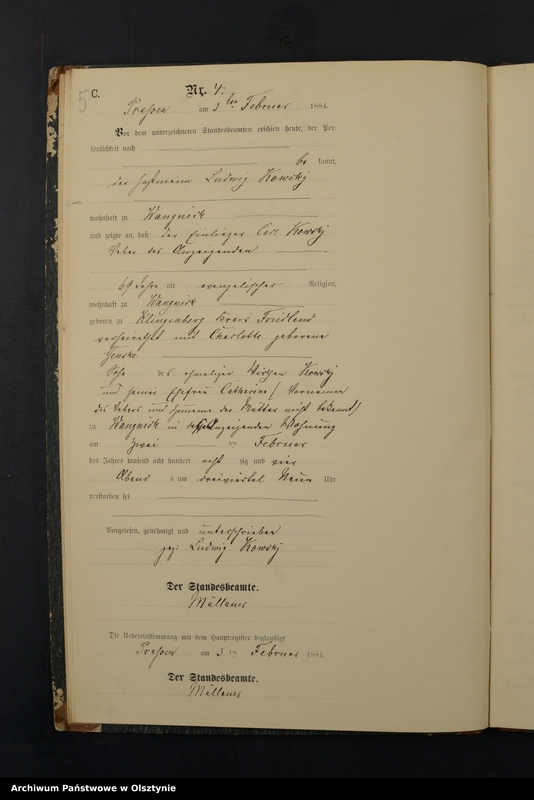 5 C.
Nr. 4.
am 3ten Februar 1884.
Vor dem unterzeichneten Standesbeamten erschien heute, der Per-
sönlichkeit nach
be kannt,
der Ludwig Kowsky
wohnhaft zu Wangnick
und zeigte an, daß der Einlieger Carl Kowsky
Vater des Anzeigenden
69 Jahre alt evangelischer Religion,
wohnhaft zu Wangnick
geboren zu Klingenberg Kreis Friedland
verheirathet mit Charlotte geborene
Sohn des ehemaligen Kowsky
und seiner Ehefrau Catharina (Vornamen
des Vaters und Zuname der Mutter nicht bekannt)
zu Wangnick in des Anzeigenden Wohnung
am zwei ten Februar
des Jahres tausend acht hundert acht zig und vier
Abend s um dreiviertel Neun Uhr
verstorben sei
Vorgelesen, genehmigt und unterschrieben
gez. Ludwig Kowsky
Der Standesbeamte.
Die Uebereinstimmung mit dem Hauptregister beglaubigt.
am 3 ten Februar 1884.
Der Standesbeamte.
Archiwum Państwowe w Olsztynie